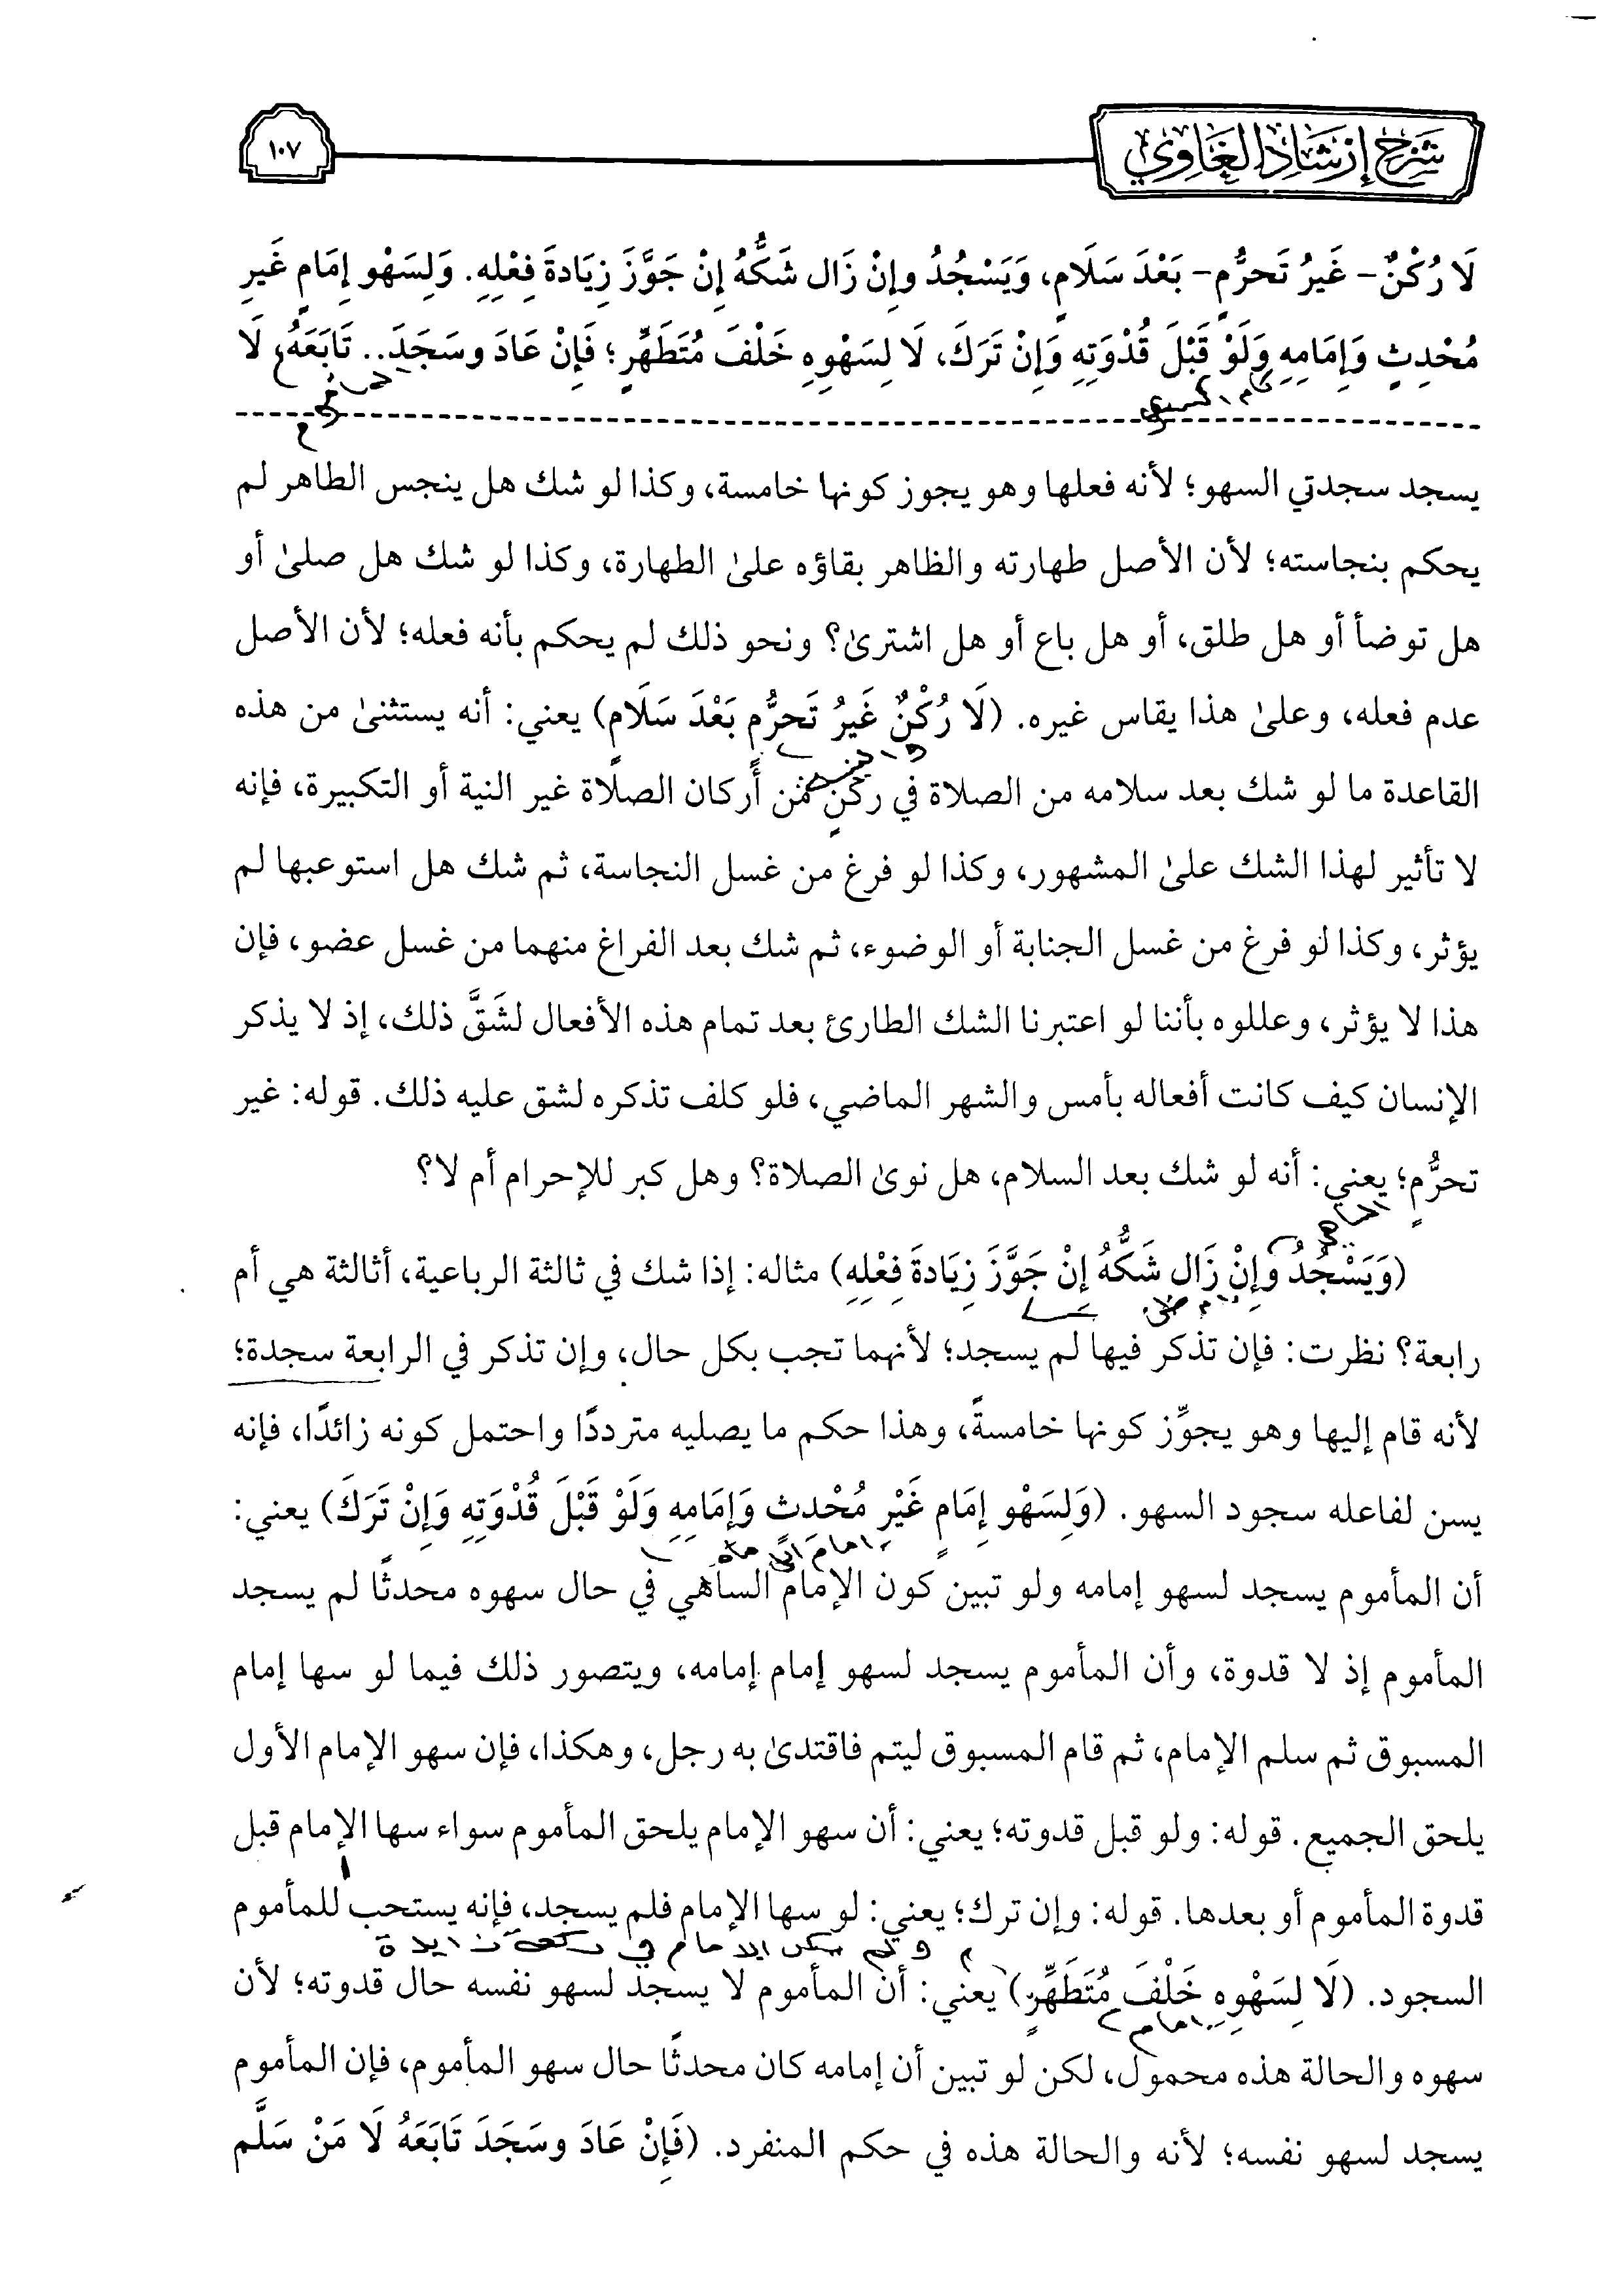 شرح إرشاد الغاوي
١٠٧
لَا رُكْنٌ- غَيْرُ تَحرُّمٍ- بَعْدَ سَلَامٍ، وَيَسْجُدُ وإِنْ زَال شَكُّهُ إِنْ جَوَّزَ زِيَادةَ فِعْلِهِ. وَلِسَهْو إِمَامٍ غَيرِ
مُحْدِثٍ وَإِمَامِهِ وَلَوْ قَبْلَ قُدْوَتِهِ وَإِنْ تَرَكَ، لَا لِسَهْوِهِ خَلْفَ مُتَطَهِّرٍ؛ فَإِنْ عَادَ وسَجَدَ.. تَابَعَهُ، لَا
يسجد سجدتي السهو؛ لأنه فعلها وهو يجوز كونها خامسة، وكذا لو شك هل ينجس الطاهر لم
يحكم بنجاسته؛ لأن الأصل طهارته والظاهر بقاؤه علىٰ الطهارة، وكذا لو شك هل صلىٰ أو
هل توضأ أو هل طلق، أو هل باع أو هل اشترىٰ؟ ونحو ذلك لم يحكم بأنه فعله؛ لأن الأصل
عدم فعله، وعلىٰ هذا يقاس غيره. (لَا رُكْنٌ غَيرُ تَحرُّمٍ بَعْدَ سَلَامٍ) يعني: أنه يستثنىٰ من هذه
القاعدة ما لو شك بعد سلامه من الصلاة في ركنٍ من أركان الصلاة غير النية أو التكبيرة، فإنه
لا تأثير لهذا الشك علىٰ المشهور، وكذا لو فرغ من غسل النجاسة، ثم شك هل استوعبها لم
يؤثر، وكذا لو فرغ من غسل الجنابة أو الوضوء، ثم شك بعد الفراغ منهما من غسل عضو، فإن
هذا لا يؤثر، وعللوه بأننا لو اعتبرنا الشك الطارئ بعد تمام هذه الأفعال لشَقَّ ذلك، إذ لا يذكر
الإنسان كيف كانت أفعاله بأمس والشهر الماضي، فلو كلف تذكره لشق عليه ذلك. قوله: غير
تحرُّمٍ؛ يعني: أنه لو شك بعد السلام، هل نوىٰ الصلاة؟ وهل كبر للإحرام أم لا؟
(وَيَسْجُدُ وإِنْ زَال شَكُّهُ إِنْ جَوَّزَ زِيَادةَ فِعْلِهِ) مثاله: إذا شك في ثالثة الرباعية، أثالثة هي أم
رابعة؟ نظرت: فإن تذكر فيها لم يسجد؛ لأنهما تجب بكل حال، وإن تذكر في الرابعة سجدة؛
لأنه قام إليها وهو يجوِّز كونها خامسةً، وهذا حكم ما يصليه مترددًا واحتمل كونه زائدًا، فإنه
يسن لفاعله سجود السهو. (وَلِسَهْو إِمَامٍ غَيْرِ مُحْدثٍ وَإِمَامِهِ وَلَوْ قَبْلَ قُدْوَتِهِ وَإِنْ تَرَكَ) يعني:
أن المأموم يسجد لسهو إمامه ولو تبين كون الإمام الساهي في حال سهوه محدثًا لم يسجد
المأموم إذ لا قدوة، وأن المأموم يسجد لسهو إمام إمامه، ويتصور ذلك فيما لو سها إمام
المسبوق ثم سلم الإمام، ثم قام المسبوق ليتم فاقتدىٰ به رجل، وهكذا، فإن سهو الإمام الأول
يلحق الجميع. قوله: ولو قبل قدوته؛ يعني: أن سهو الإمام يلحق المأموم سواء سها الإمام قبل
قدوة المأموم أو بعدها. قوله: وإن ترك؛ يعني: لو سها الإمام فلم يسجد، فإنه يستحب للمأموم
السجود. (لَا لِسَهْوِهِ خَلْفَ مُتَطَهِّرٍ) يعني: أن المأموم لا يسجد لسهو نفسه حال قدوته؛ لأن
سهوه والحالة هذه محمول، لكن لو تبين أن إمامه كان محدثًا حال سهو المأموم، فإن المأموم
يسجد لسهو نفسه؛ لأنه والحالة هذه في حكم المنفرد. (فَإِنْ عَادَ وسَجَدَ تَابَعَهُ لَا مَنْ سَلَّم